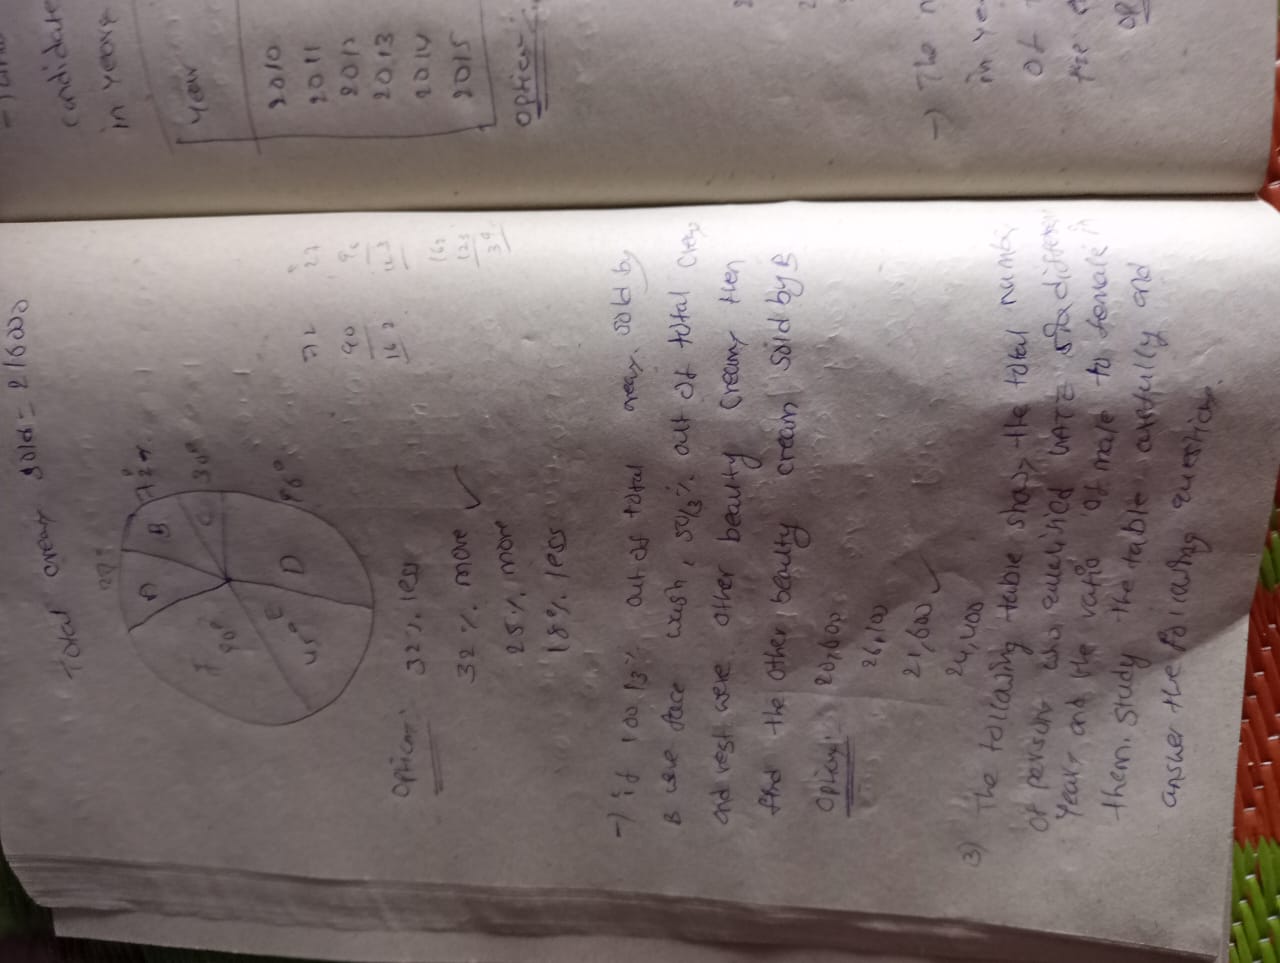 Total creams sold = 216000
27°
A
B
72°
C
30°
F
90°
E
45°
D
96°
Options:- 32% less
32% more ✓
25% more
18% less
72
90
162
27
96
123
162
123
39
-) if 100/3% out of total creams sold by
B were face wash, 50/3% out of total creams
and rest were other beauty creams then
find the other beauty cream sold by B
Options:- 20,600
26,100
21,600 ✓
24,400
3) The following table shows the total number
of persons who qualified GATE six different
years and the ratio of male to female in
them. Study the table carefully and
answer the following questions.
candidate
in years
Year
2010
2011
2012
2013
2014
2015
Options:-
-) The
in
of
the